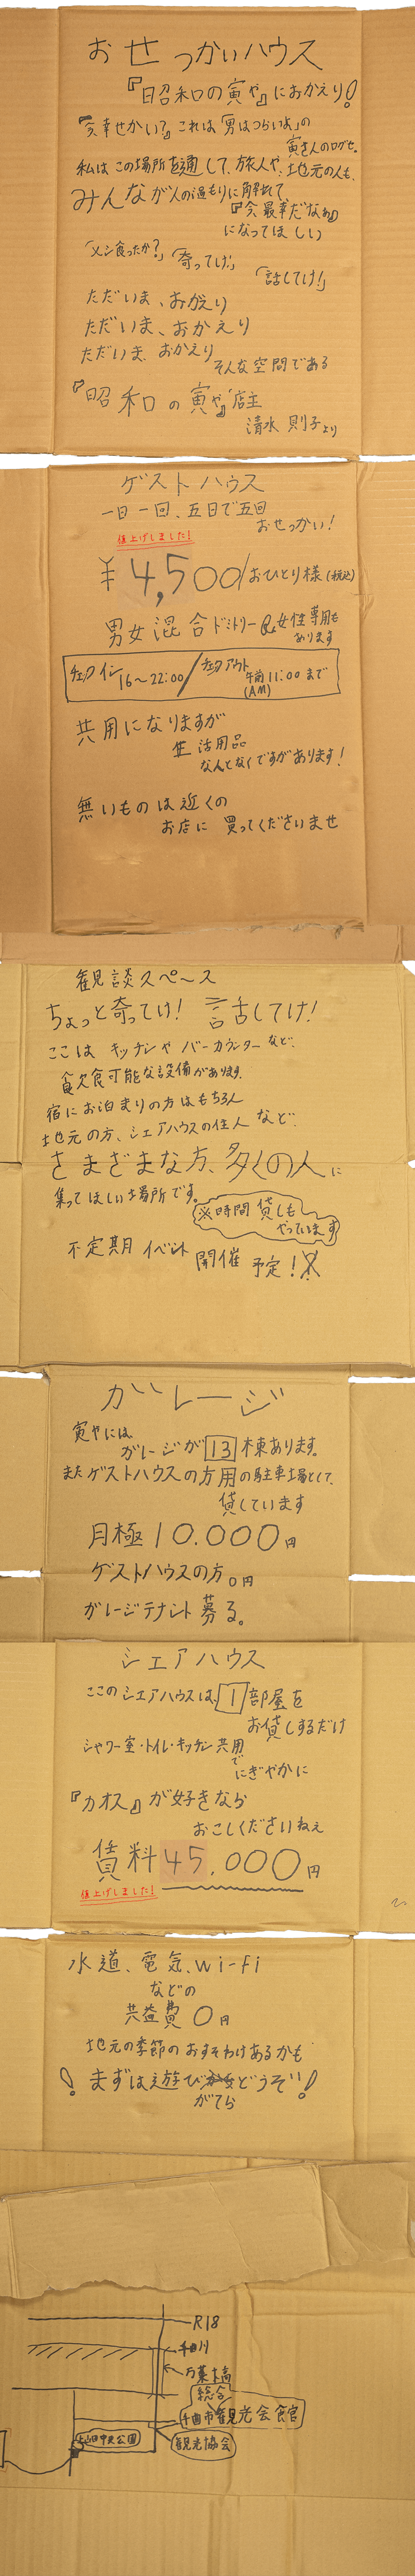 おせっかいハウス
『昭和の寅や』におかえり!
「今幸せかい?」これは「男はつらいよ」の
寅さんのログセ。
私はこの場所を通して、旅人や、地元の人も、
みんなが人の温もりに
『今最幸だなぁ』
になってほしい
「メシ食ったか?」「寄ってけ!」
「話してけ!」
ただいま、おかえり
ただいま、おかえり
ただいま、おかえり
そんな空間である
『昭和の寅や』店主
清水 則子より
ゲストハウス
一日一回、五日で五回
おせっかい!
値上げしました!
¥4,500/おひとり様(税込)
男女混合ドミトリー&女性専用も
あります
チェックイン 16〜22:00/チェックアウト 午前11:00まで
(AM)
共用になりますが
生活用品
なんとなくですがあります!
無いものは近くの
お店に買ってくださいませ
観談スペース
ちょっと寄ってけ!話してけ!
ここはキッチンやバーカウンターなど、
飲食可能な設備があります。
宿にお泊まりの方はもちろん
地元の方、シェアハウスの住人など、
さまざまな方、多くの人に
集ってほしい場所です。
※時間貸しも
やっています
不定期イベント開催予定!
ガレージ
寅やには
ガレージが13棟あります。
またゲストハウスの方用の駐車場として、
貸しています
月極10.000円
ゲストハウスの方0円
ガレージテナント募る。
シェアハウス
ここのシェアハウスは、1部屋を
お貸しするだけ
シャワー室・トイレ・キッチン共用
で
にぎやかに
『カオス』が好きなら
おこしくださいねぇ
賃料45.000円
値上げしました!
水道、電気、wi-fi
などの
共益費0円
地元の季節のおすそわけあるかも
!まずは遊びどうぞ!
がてら
R18
千曲川
万葉橋
総合
千曲市観光会館
上山田中央公園
観光協会